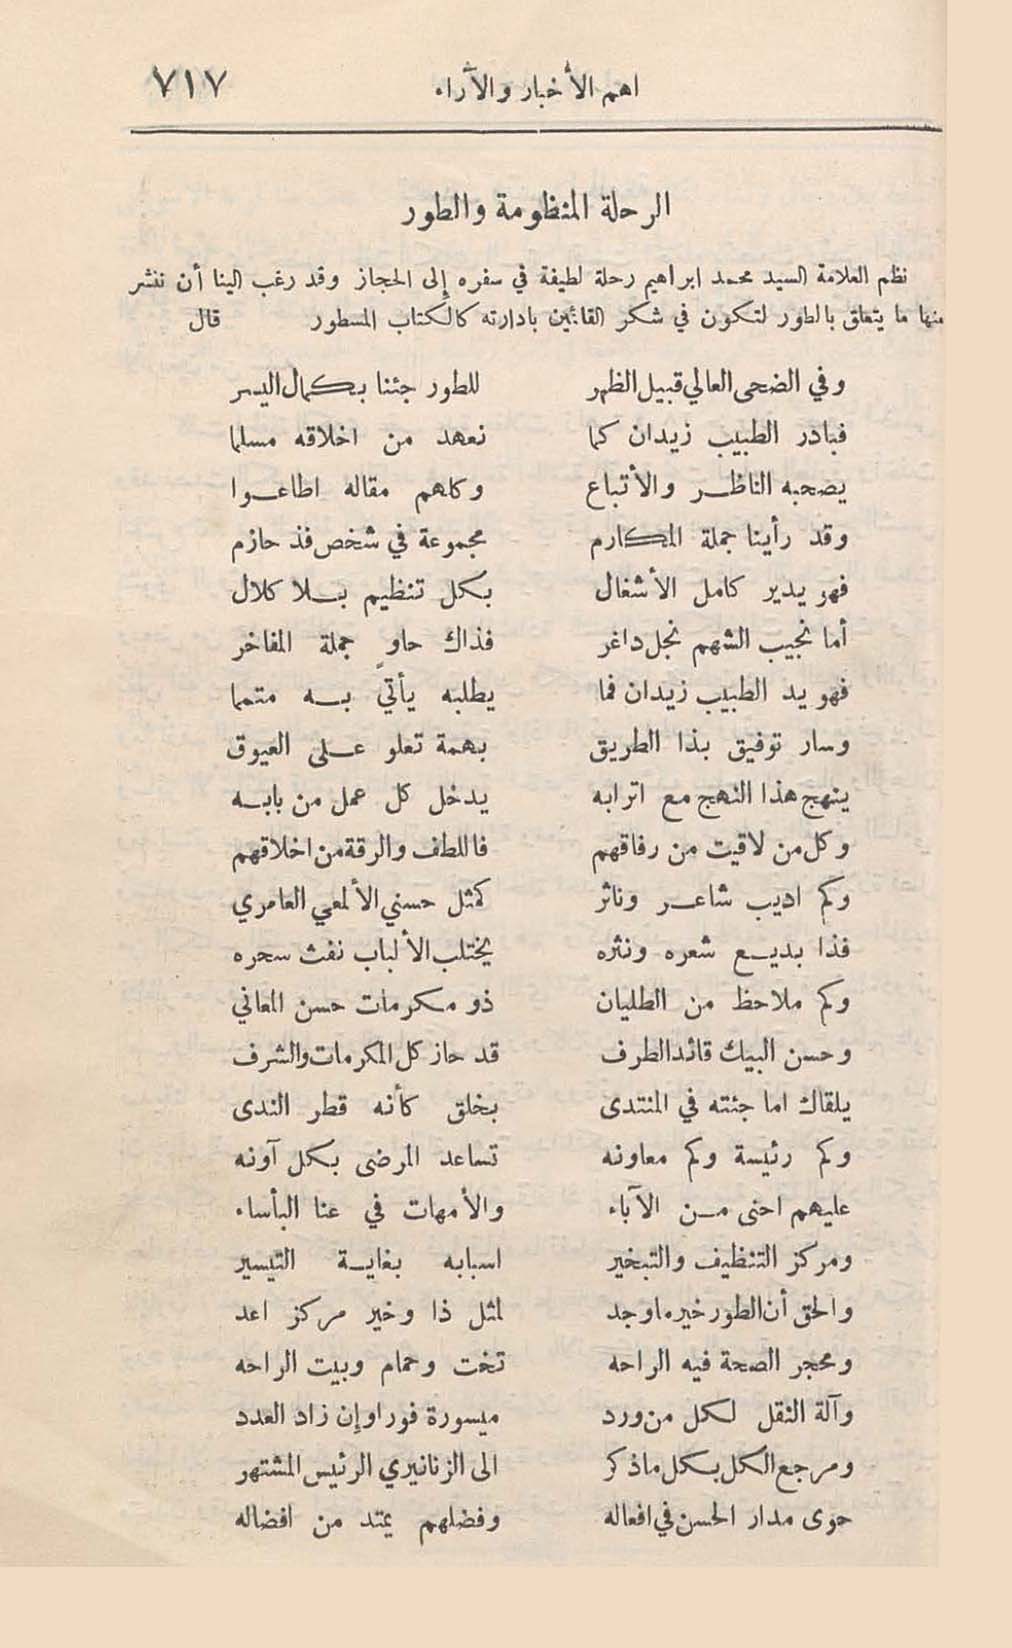 اهم الأخبار والآراء ٧١٧
الرحلة المنظومة والطور
نظم العلامة السيد محمد ابراهيم رحلة لطيفة في سفره إلى الحجاز وقد رغب الينا أن ننشر
منها ما يتعلق بالطور لتكون في شكر القائمين بادارته كالكتاب المسطور قال
وفي الضحى العالي قبيل الظهر للطور جئنا بكمال اليسر
فبادر الطبيب زيدان كما نعهد من اخلاقه مسلما
يصحبه الناظر والأتباع وكلهم مقاله اطاعوا
وقد رأينا جملة المكارم مجموعة في شخص فذ حازم
فهو يدير كامل الأشغال بكل تنظيم بلا كلال
أما نجيب الشهم نجل داغر فذاك حاوٍ جملة المفاخر
فهو يد الطبيب زيدان فما يطلبه يأتي به متمما
وسار توفيق بذا الطريق بهمة تعلو على العيوق
ينهج هذا النهج مع اترابه يدخل كل عمل من بابه
وكل من لاقيت من رفاقهم فاللطف والرقة من اخلاقهم
وكم اديب شاعر وناثر كمثل حسني الألمعي العامري
فذا بديع شعره ونثره يختلب الألباب نفث سحره
وكم ملاحظ من الطليان ذو مكرمات حسن المعاني
وحسن البيك قائد الطرف قد حاز كل المكرمات والشرف
يلقاك اما جئته في المنتدى بخلق كأنه قطر الندى
وكم رئيسة وكم معاونه تساعد المرضى بكل آونه
عليهم احنى من الآباء والأمهات في عنا البأساء
ومركز التنظيف والتبخير اسبابه بغاية التيسير
والحق أن الطور خير ما وجد لمثل ذا وخير مركز اعد
ومحجر الصحة فيه الراحه تخت وحمام وبيت الراحه
وآلة النقل لكل من ورد ميسورة فورا وإن زاد العدد
ومرجع الكل بكل ما ذكر الى الزنانيري الرئيس المشتهر
حوى مدار الحسن في افعاله وفضلهم يمتد من افضاله